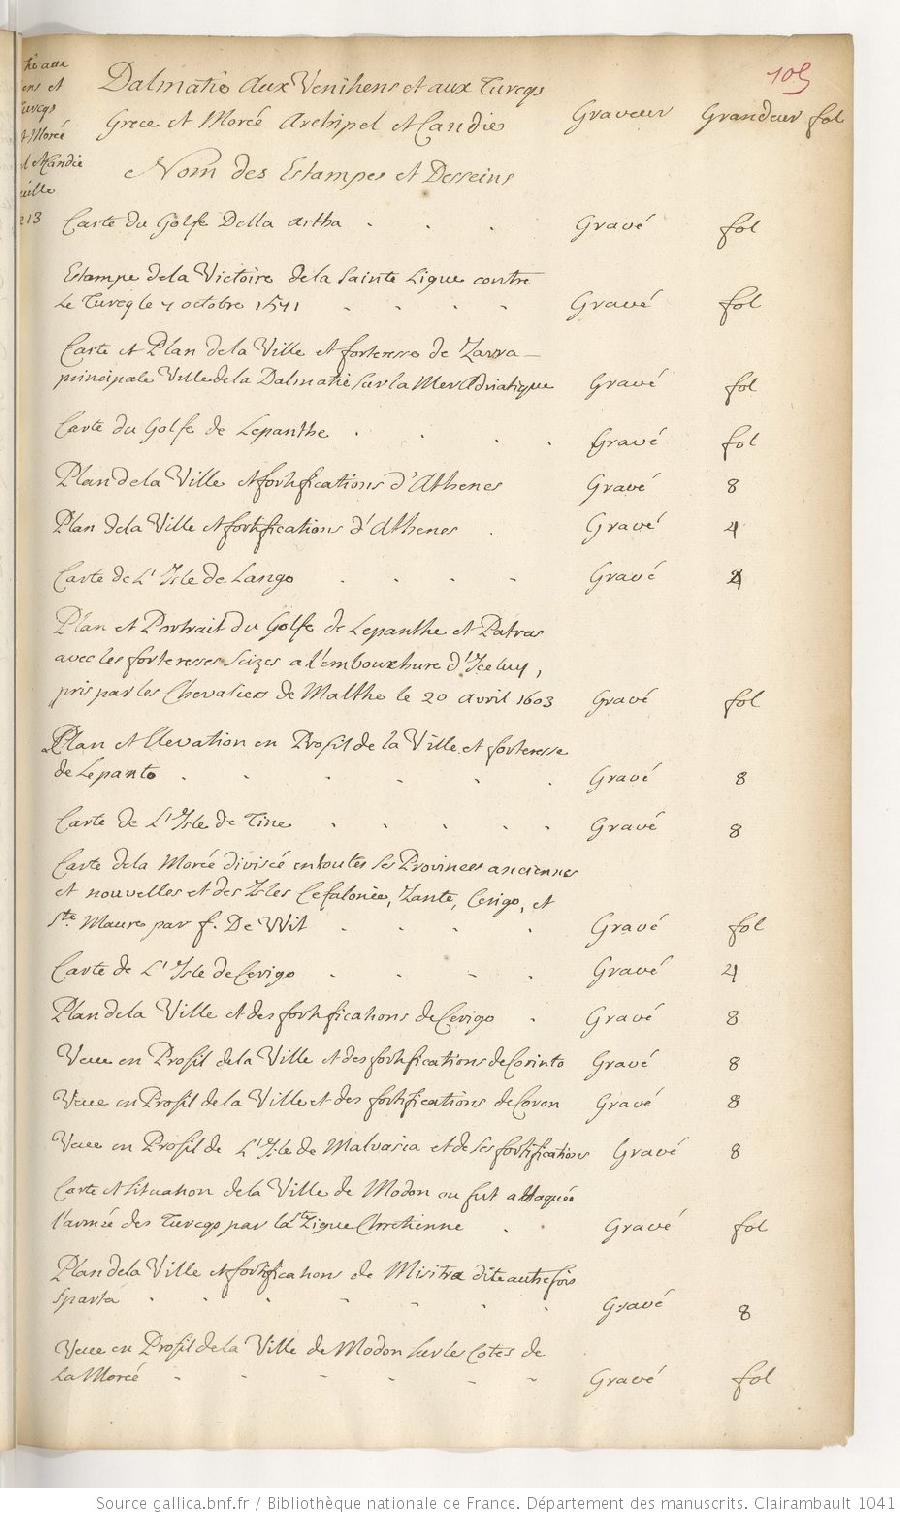 105
Dalmatie aux Venitiens et aux Turcqs
Grece et Morée Archipel et Candie Graveur Grandeur fol
Nom des Estampes et Desseins
Carte du Golfe Della artha . . . Gravé fol
Estampe de la Victoire de la Sainte Ligue contre
Le Turcq le 7 octobre 1571 . . . . Gravé fol
Carte et Plan de la Ville et forteresse de Zarra
principale Ville de la Dalmatie sur la Mer Adriatique Gravé fol
Carte du Golfe de Lepanthe . . . . Gravé fol
Plan de la Ville et fortifications d'Athenes Gravé 8
Plan de la Ville et fortifications d'Athenes . Gravé 4
Carte de L'Isle de Lango . . . . Gravé
Plan et Portrait du Golfe de Lepanthe et Patras
avec les forteresses seizes a l'embouchure d'Icelluy,
pris par les Chevaliers de Malthe le 20 avril 1603 Gravé fol
Plan et Elevation en Profil de la Ville et forteresse
de Lepanto . . . . . . Gravé 8
Carte de L'Isle de Tine . . . . . Gravé 8
Carte de la Morée divisée en toutes ses Provinces anciennes
et nouvelles et des Isles Cefalonie, Zante, Cerigo, et
Ste. Maure par f. De Wit . . . . Gravé fol
Carte de L'Isle de Cerigo . . . . Gravé 4
Plan de la Ville et des fortifications de Cerigo . Gravé 8
Veue en Profil de la Ville et des fortifications de Corinto Gravé 8
Veue en Profil de la Ville et des fortifications de Coron Gravé 8
Veue en Profil de L'Isle de Malvasia et de ses fortifications Gravé 8
Carte et situation de la Ville de Modon ou fut attaquée
l'armée des Turcqs par la Ste Ligue Chretienne . . Gravé fol
Plan de la Ville et fortifications de Misitra dite autrefois
Sparta . . . . . . . Gravé 8
Veue en Profil de la Ville de Modon sur les Cotes de
La Morée - - - - - - Gravé fol
Source gallica.bnf.fr / Bibliothèque nationale de France. Département des manuscrits. Clairambault 1041